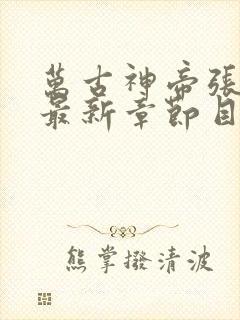 萬古神帝張
最新章節目
熊掌撥清波